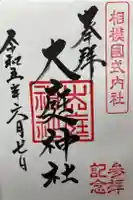 相模國式内社
奉拝
大庭神社
令和五年六月七日
参拝記念